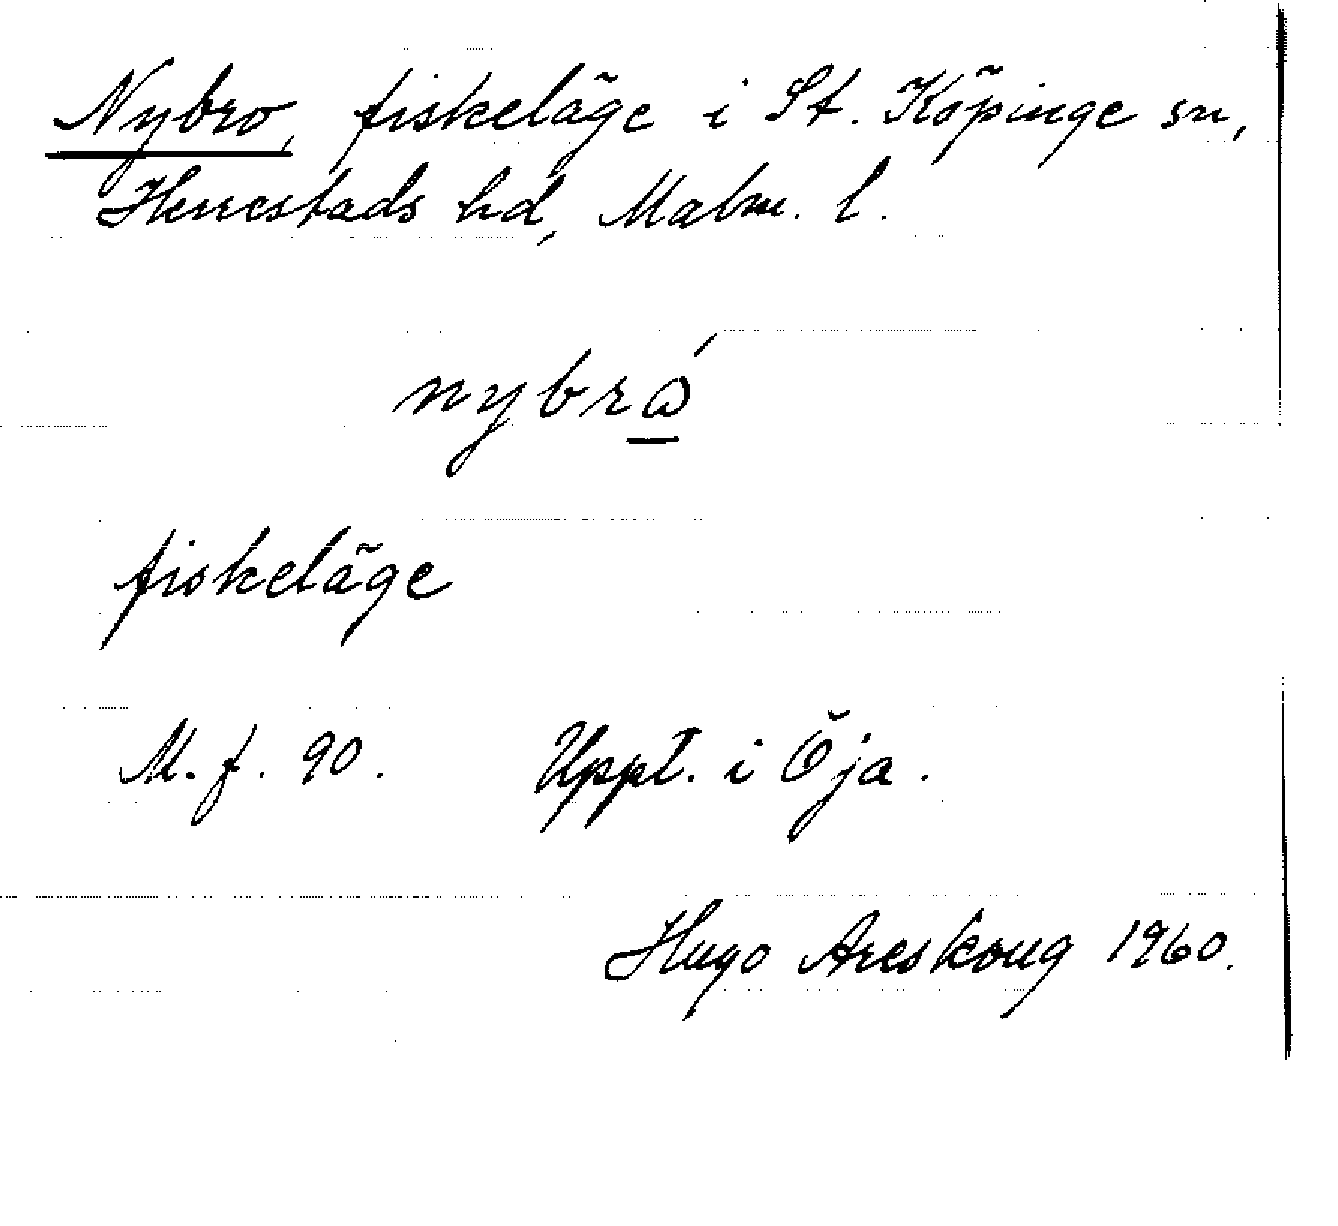 Nybro, fiskeläge i St. Köpinge sn,
Herrestads hd, Malm. l.
nybrώ
fiskeläge
M. f. 90. Uppt. i Öja.
Hugo Areskoug 1960.